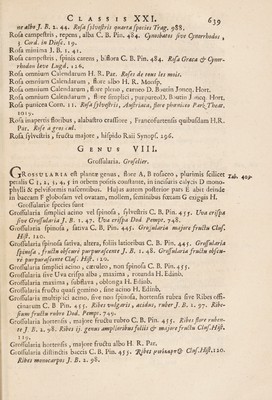 CLASSIS XXI.
639
ne alba J. B. 2. 44. Rosa sylvestris quarta species Trag. 988.
Rosa campestris, repens, alba C. B. Pin. 484. Cynosbatos sive Cynorrhodos,
Cord. in Diosc. 19.
Rosa minima J. B. 2. 41.
Rosa campestris, spinis carens, biflora C. B. Pin. 484. Rosa Græca & Cynor-
rhodos leve Lugd. 126.
Rosa omnium Calendarum H. R. Par. Roses de tous les mois.
Rosa omnium Calendarum, flore albo H. R. Monsp.
Rosa omnium Calendarum, flore pleno, carneo D. Boutin Joncq. Hort.
Rosa omnium Calendarum, flore simplici, purpureo D. Boutin Joncq. Hort.
Rosa punicea Corn. 11. Rosa sylvestris, Austriaca, flore phœniceo Park. Theat.
1019.
Rosa inapertis floribus, alabastro crassiore, Francofurtensis quibusdam H.R.
Par. Rose à gros cul.
Rosa sylvestris, fructu majore, hispido Raii Synops. 296.
GENUS VIII.
Grossularia. Groselier.
GROSSULARIA est plantæ genus, flore A, B rosaceo, plurimis scilicet Tab. 409.
petalis C, 1, 2, 3, 4, 5 in orbem positis constante, in incisuris calycis D mono-
phylli & pelviformis nascentibus. Hujus autem posterior pars E abit deinde
in baccam F globosam vel ovatam, mollem, seminibus fœtam G exiguis H.
Grossulariæ species sunt
Grossularia simplici acino vel spinosa, sylvestris C. B. Pin. 455. Uva crispa
sive Grossularia J. B. 1. 47. Uva crispa Dod. Pempt. 748.
Grossularia spinosa, sativa C. B. Pin. 445. Grossularia majore fructu Clus.
Hist. 120.
Grossularia spinosa sativa, altera, foliis latioribus C. B. Pin. 445. Grossularia
spinosa, fructu obscurè purpurascente J. B. 1. 48. Grossularia fructu obscu-
rè purpurascente Clus. Hist. 120.
Grossularia simplici acino, cæruleo, non spinosa C. B. Pin. 455.
Grossularia sive Uva crispa alba, maxima, rotunda H. Edinb.
Grossularia maxima, subflava, oblonga H. Edinb.
Grossularia fructu quasi gemino, sine acino H. Edinb.
Grossularia multiplici acino, sive non spinosa, hortensis rubra sive Ribes offi-
cinarum C. B. Pin. 455. Ribes vulgaris, acidus, ruber J. B. 2. 97. Ribe-
sium fructu rubro Dod. Pempt. 749.
Grossularia hortensis, majore fructu rubro C. B. Pin. 455. Ribes flore ruben-
te J. B. 2. 98. Ribes ij. genus amplioribus foliis & majore fructu Clus. Hist.
119.
Grossularia hortensis, majore fructu albo H. R. Par.
Grossularia distinctis baccis C. B. Pin. 455. Hist. 120.
Ribes monocarpos J. B. 2. 98.